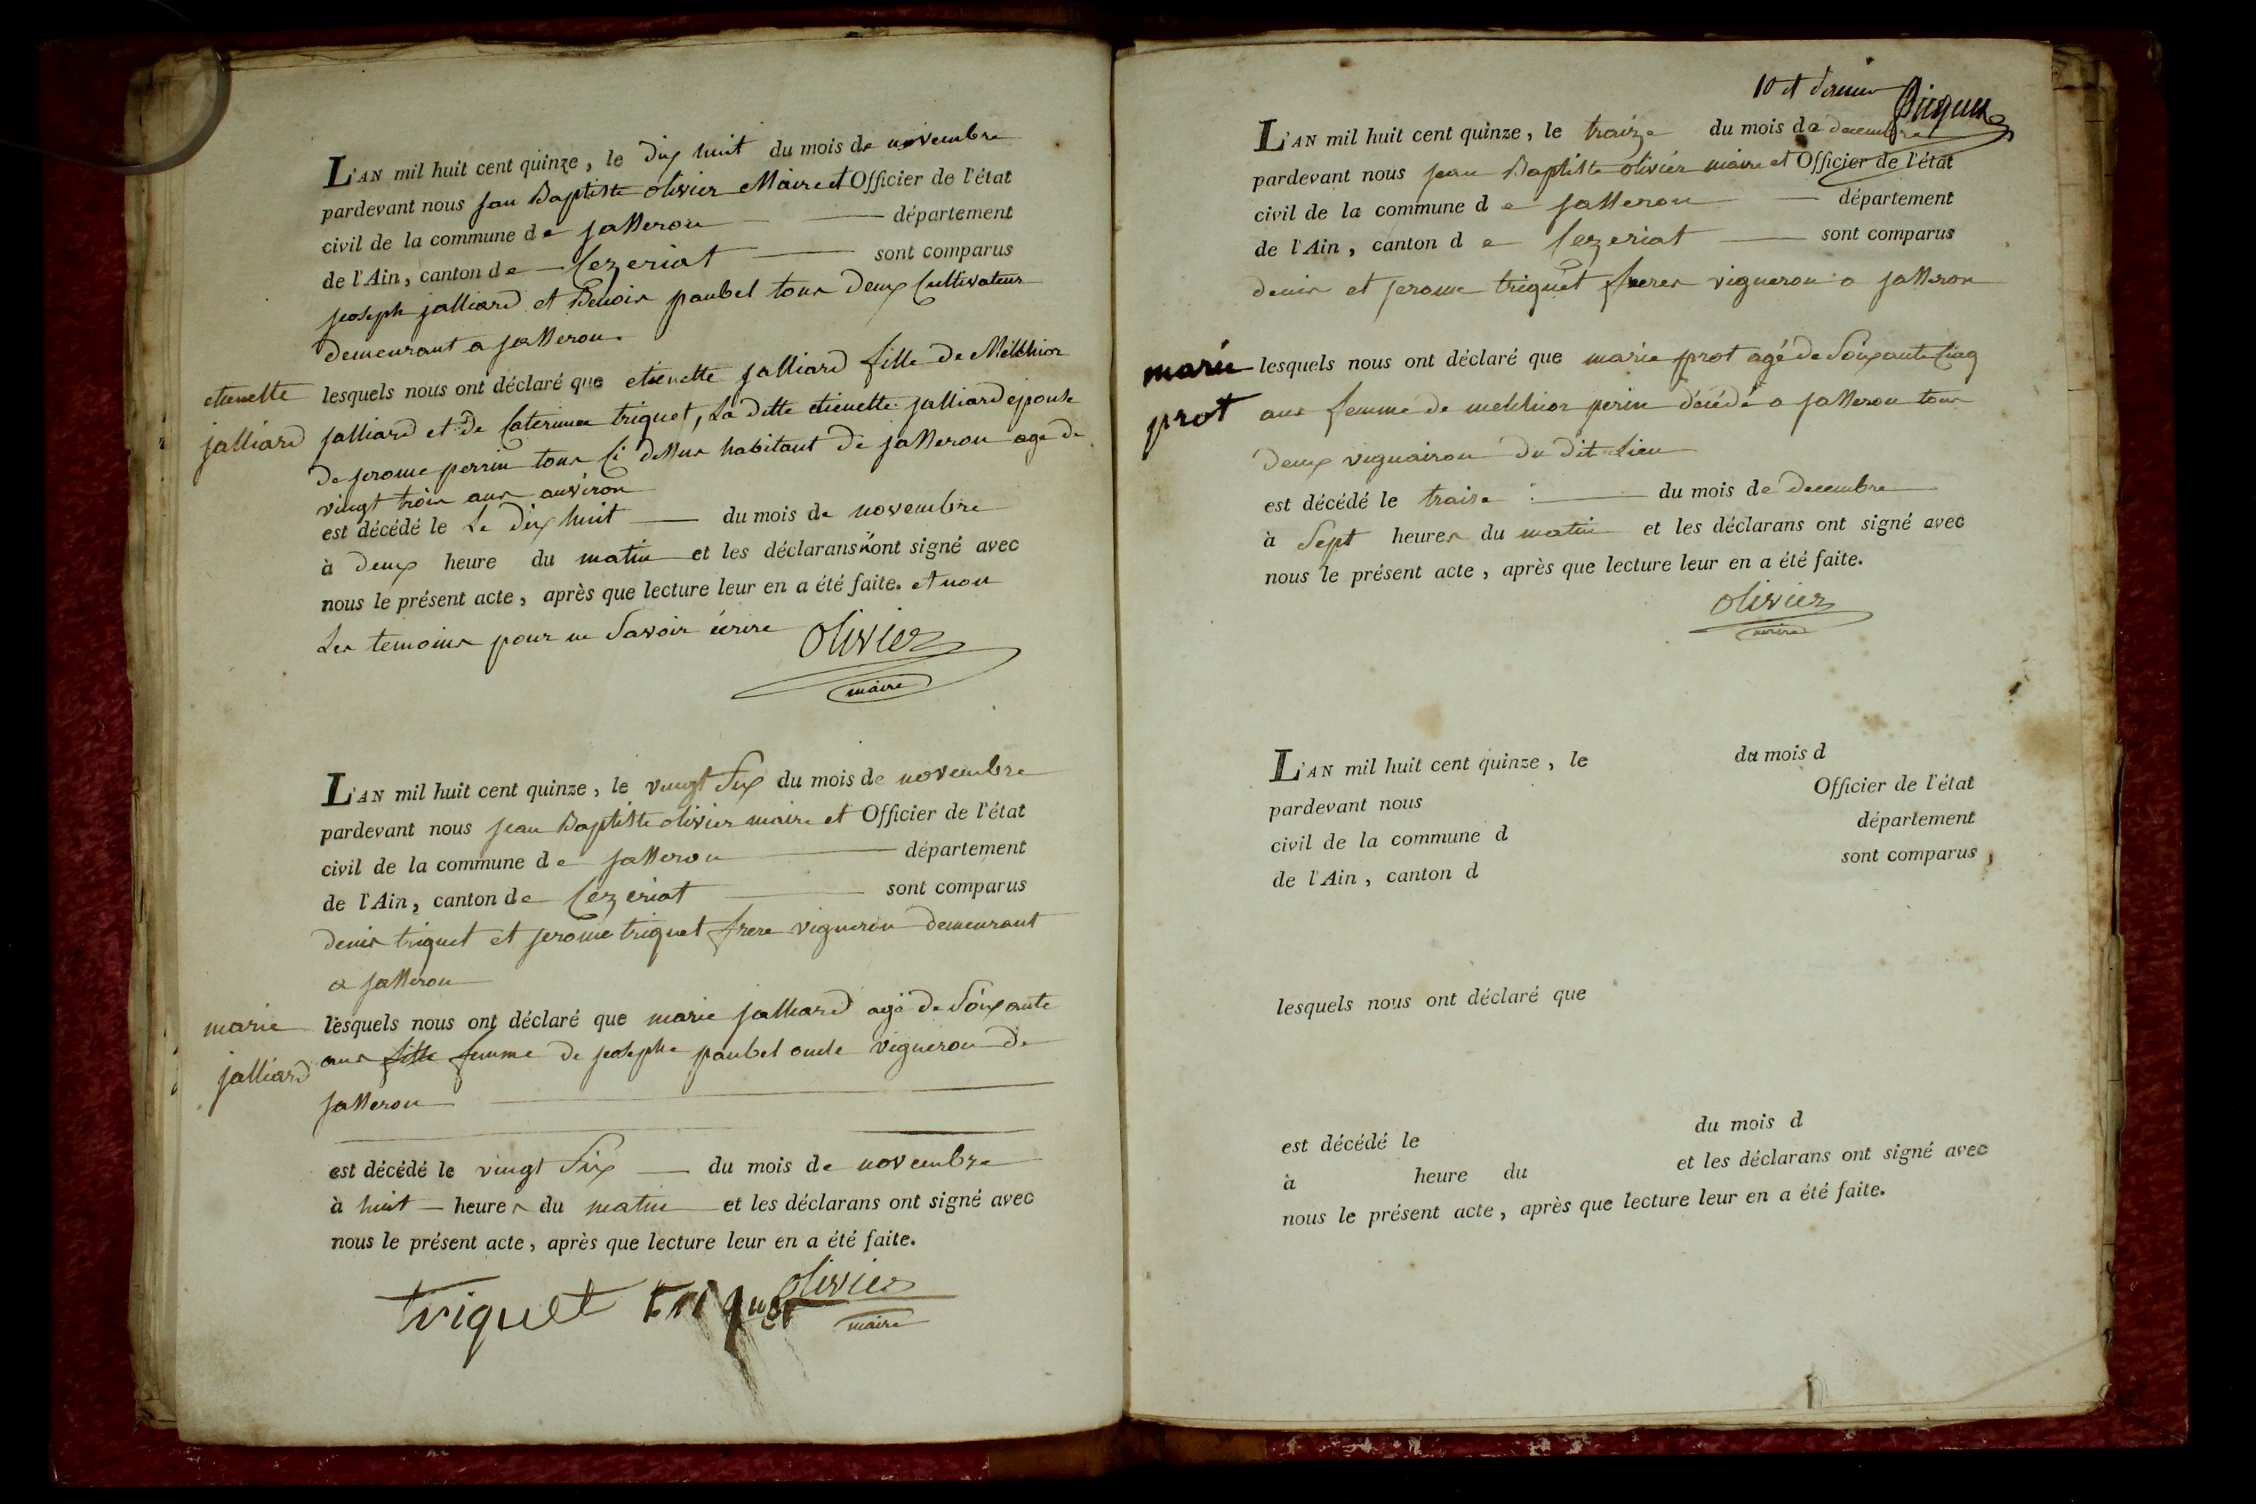 L'AN mil huit cent quinze, le dix huit du mois de novembre
pardevant nous jean Baptiste olivier Maire et Officier de l'état
civil de la commune de jasseron département
de l'Ain, canton de Cezeriat sont comparus
joseph jalliard et Benoir paubel tous deux Cultivateur
demeurant a jasseron.
etienette
jalliard
lesquels nous ont déclaré que etienette jalliard fille de Melchior
jalliard et de Caterinne triquet, La ditte etienette jalliard epouse
de jerome perrin tous Ci dessus habitant de jasseron age de
vingt trois ans anviron
est décédé le Le dix huit du mois de novembre
à deux heure du matin et les déclarans n'ont signé avec
nous le présent acte, après que lecture leur en a été faite. et non
Les temoins pour ne Savoir écrire olivier
maire
L'AN mil huit cent quinze, le vingt Six du mois de novembre
pardevant nous jean Baptiste olivier maire et Officier de l'état
civil de la commune de jasseron département
de l'Ain, canton de Cezeriat sont comparus
denis triquet et jerome triquet frere vigneron demeurant
a jasseron
marie
jalliard
lesquels nous ont déclaré que marie jalliard agé de Soixante
ans fille femme de josephe paubel oncle vigneron de
jasseron
est décédé le vingt Six du mois de novembre
à huit heures du matin et les déclarans ont signé avec
nous le présent acte, après que lecture leur en a été faite.
triquet triquet olivier
maire
10 et dernier
L'AN mil huit cent quinze, le traize du mois de decembre
pardevant nous jean Baptiste olivier maire et Officier de l'état
civil de la commune de jasseron département
de l'Ain, canton de Cezeriat sont comparus
denis et jerome triquet freres vigneron a jasseron
marie
prot
lesquels nous ont déclaré que marie prot agé de Soixante Cinq
ans femme de melchior perin décédé a jasseron tous
deux vignairon du dit Lieu
est décédé le traise du mois de decembre
à Sept heures du matin et les déclarans ont signé avec
nous le présent acte, après que lecture leur en a été faite.
olivier
maire
L'AN mil huit cent quinze, le du mois d
pardevant nous Officier de l'état
civil de la commune d département
de l'Ain, canton d sont comparus
lesquels nous ont déclaré que
est décédé le du mois d
à heure du et les déclarans ont signé avec
nous le présent acte, après que lecture leur en a été faite.